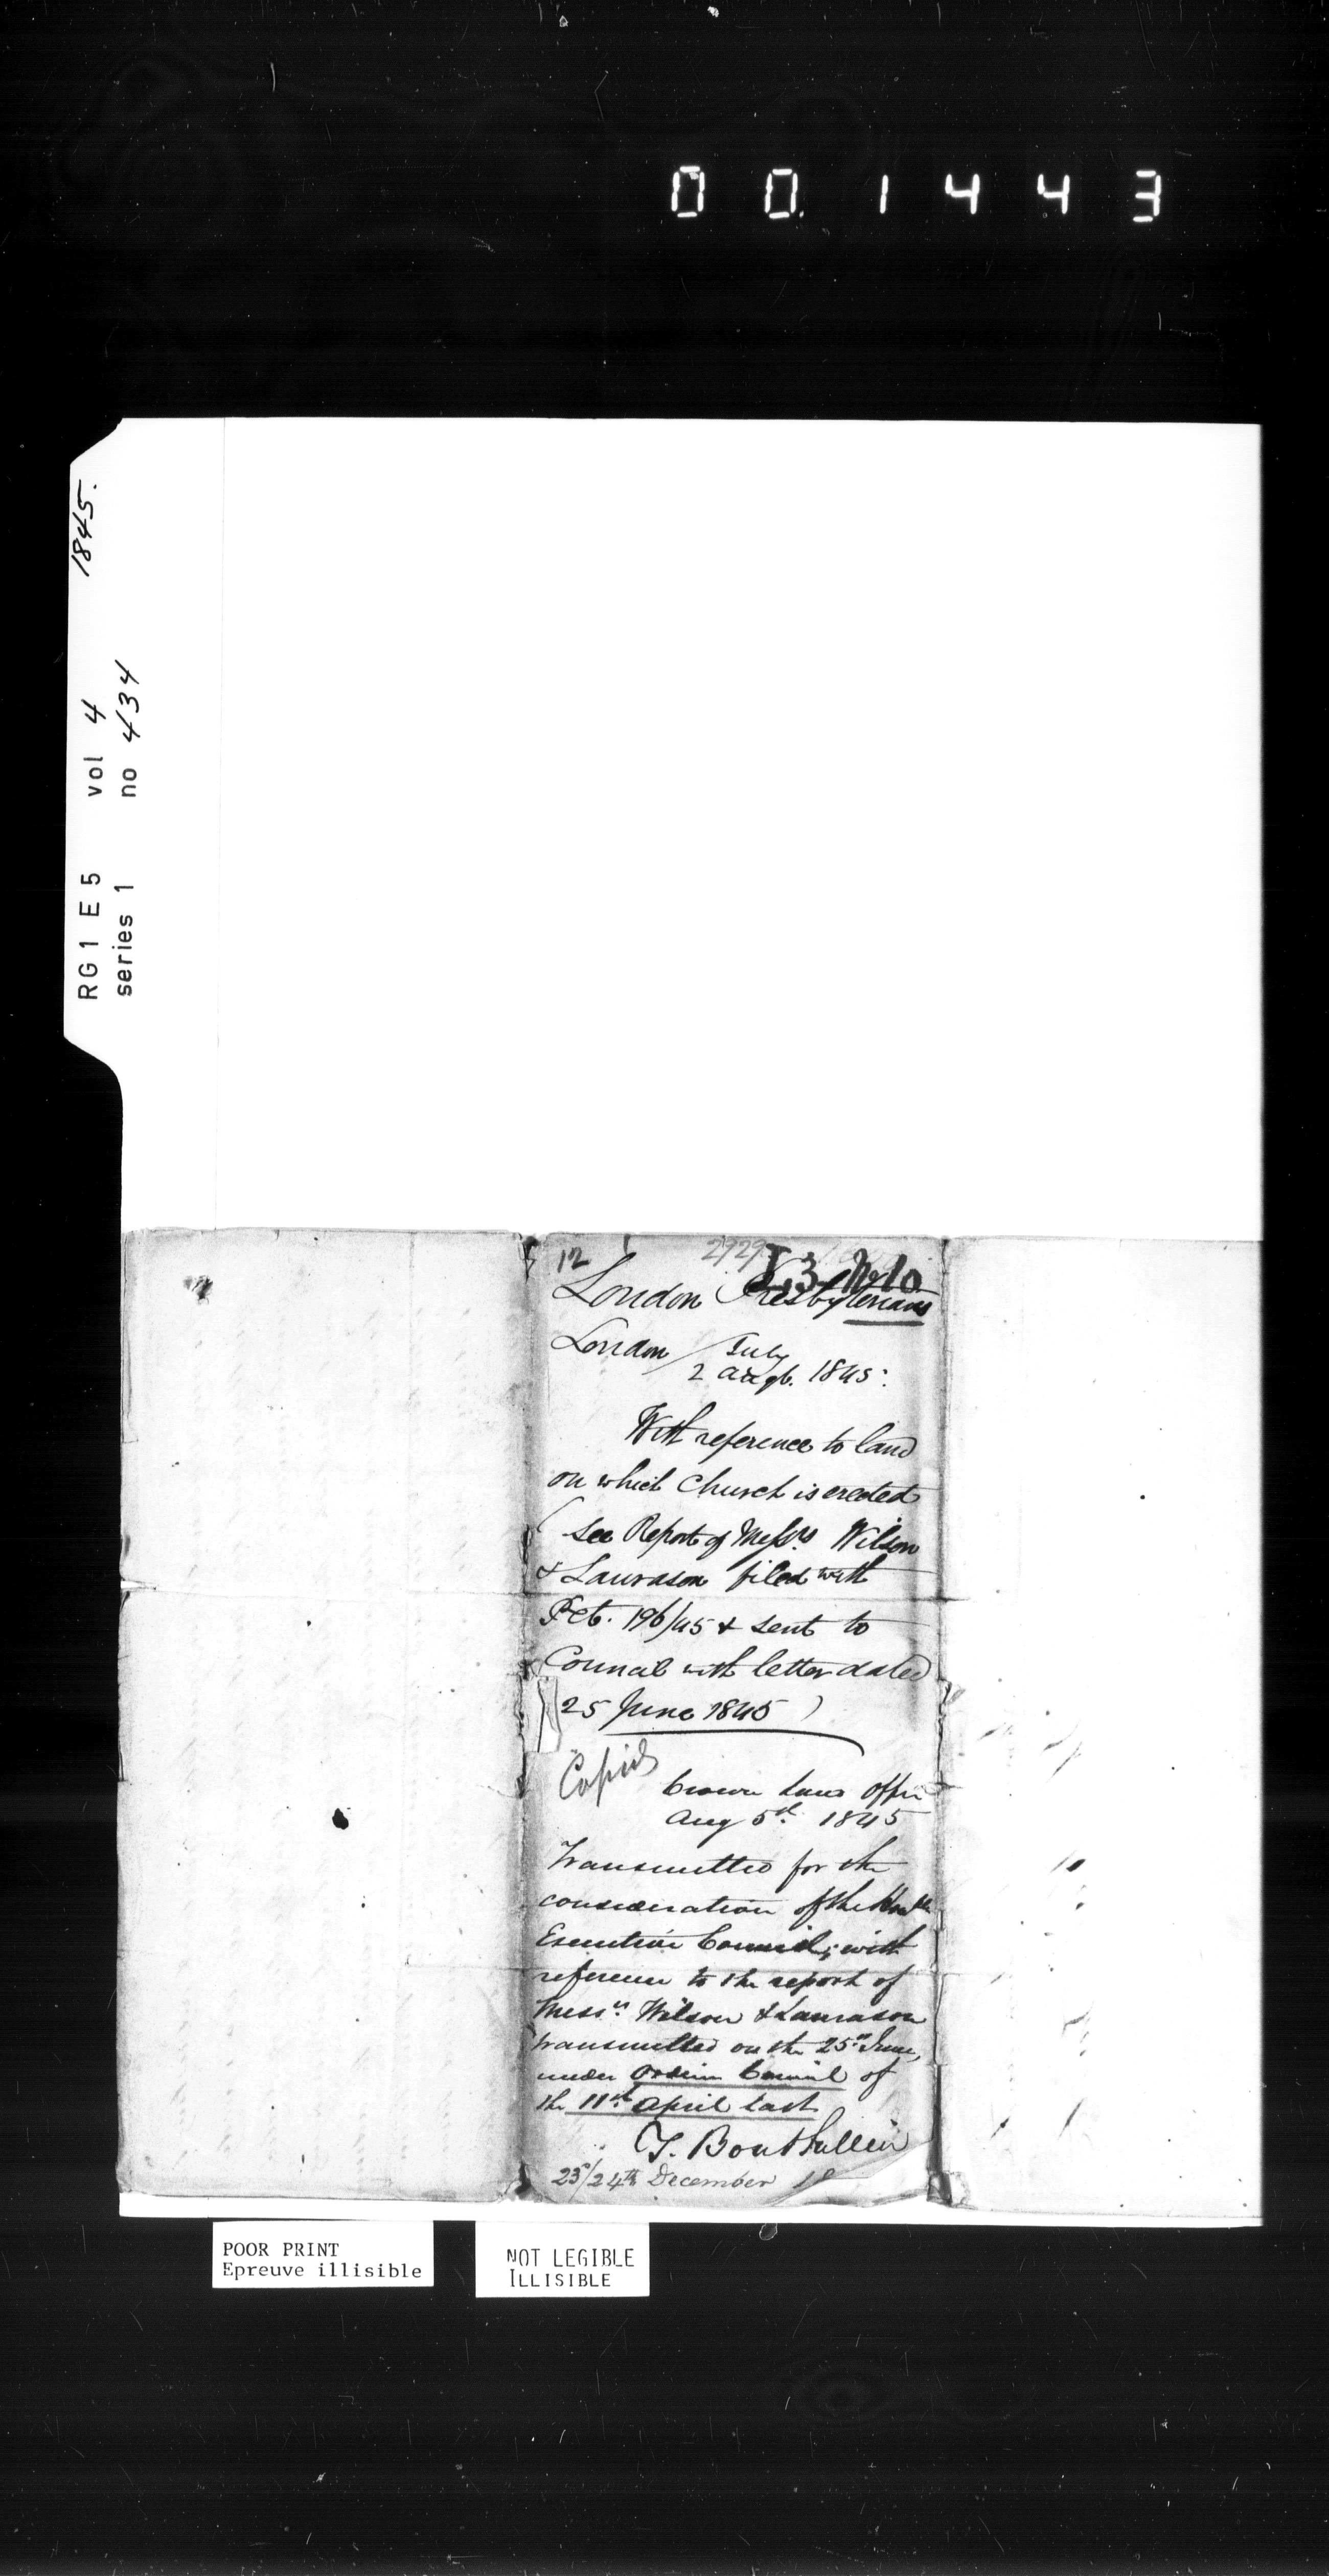 00.1443
1845.
RG1 E5 vol 4
series 1 no 434
12 2929
L3 No 10
London Presbyterians
London July
2 Augt. 1845.
With reference to land
on which Church is erected
(see Report of Messrs Wilson
& Lawrason filed with
Pet. 196/45 & sent to
Council with letter dated
25 June 1845)
Copied
Crown Land Office
Aug 5th 1845
Transmitted for the
consideration of the Honble
Executive Council; with
reference to the report of
Messrs Wilson & Lawrason
transmitted on the 25th June,
under Order in Council of
the 11th April last
T. Bouthillier
23/24th December
POOR PRINT
Epreuve illisible
NOT LEGIBLE
ILLISIBLE